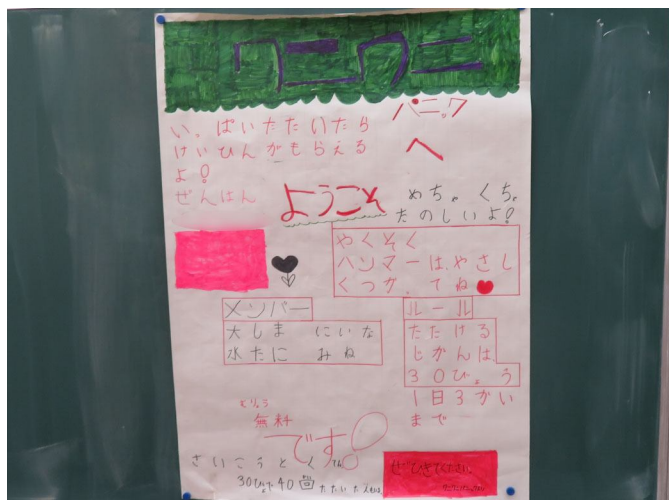 ワニワニ
パニック
へ
いっぱいたたいたら
けいひんがもらえる
よ!
ぜんはん
ようこそ
めちゃくちゃ
たのしいよ!
やくそく
ハンマーは、やさし
くつかってね
メンバー
大しま にいな
水たに みね
ルール
たたける
じかんは、
30びょう
1日3かい
まで
むりょう
無料
です!
さいこうとくてん
30びょうで40回
ぜひきてください。